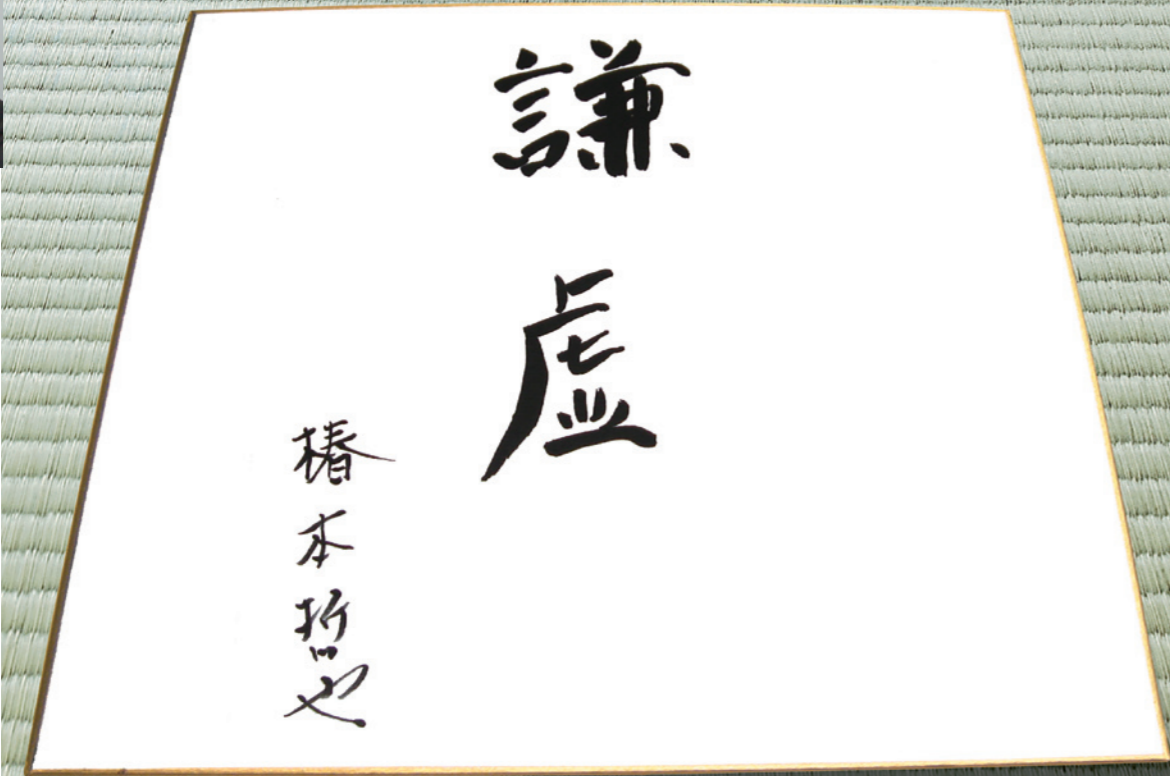 謙虚
椿本哲也